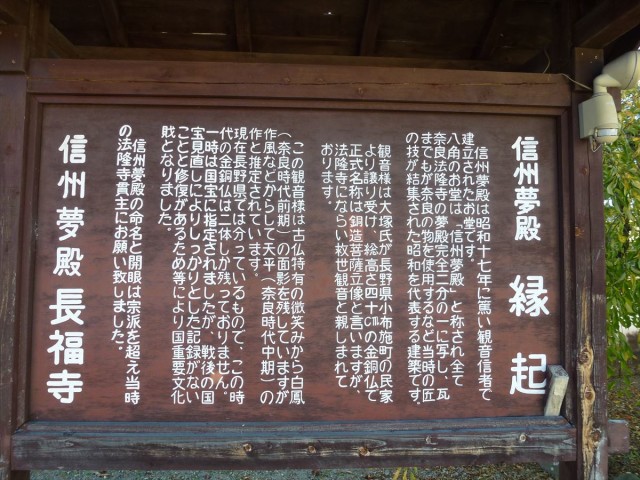 信州夢殿　縁起
信州夢殿は昭和十七年に篤い観音信者で
建立されたお堂です。
八角のお堂は「信州夢殿」と称され全て
奈良法隆寺の夢殿完全二分の一に写し、瓦
までもが奈良の物を使用するなど当時の匠
の技が結集された昭和を代表する建築です。
観音様は大塚氏が長野県小布施町の民家
より譲り受け、総高さ四十㎝の金銅仏で
正式名称は銅造菩薩立像と言いますが、
法隆寺にならい救世観音と親しまれて
おります。
この観音様は古仏特有の微笑みから白鳳
（奈良時代前期）の面影を残していますが
作風などからして天平（奈良時代中期）の
作と推定されています。
現在長野県では分っているもので、この時
代の金銅仏は二体しか残っておりません。
一時は国宝に指定されましたが、戦後の国
宝見直しによりしっかりとした記録がない
ことと修復があるため等により国重要文化
財となりました。
信州夢殿の命名と開眼は宗派を超え当時
の法隆寺貫主にお願い致しました。
信州夢殿　長福寺